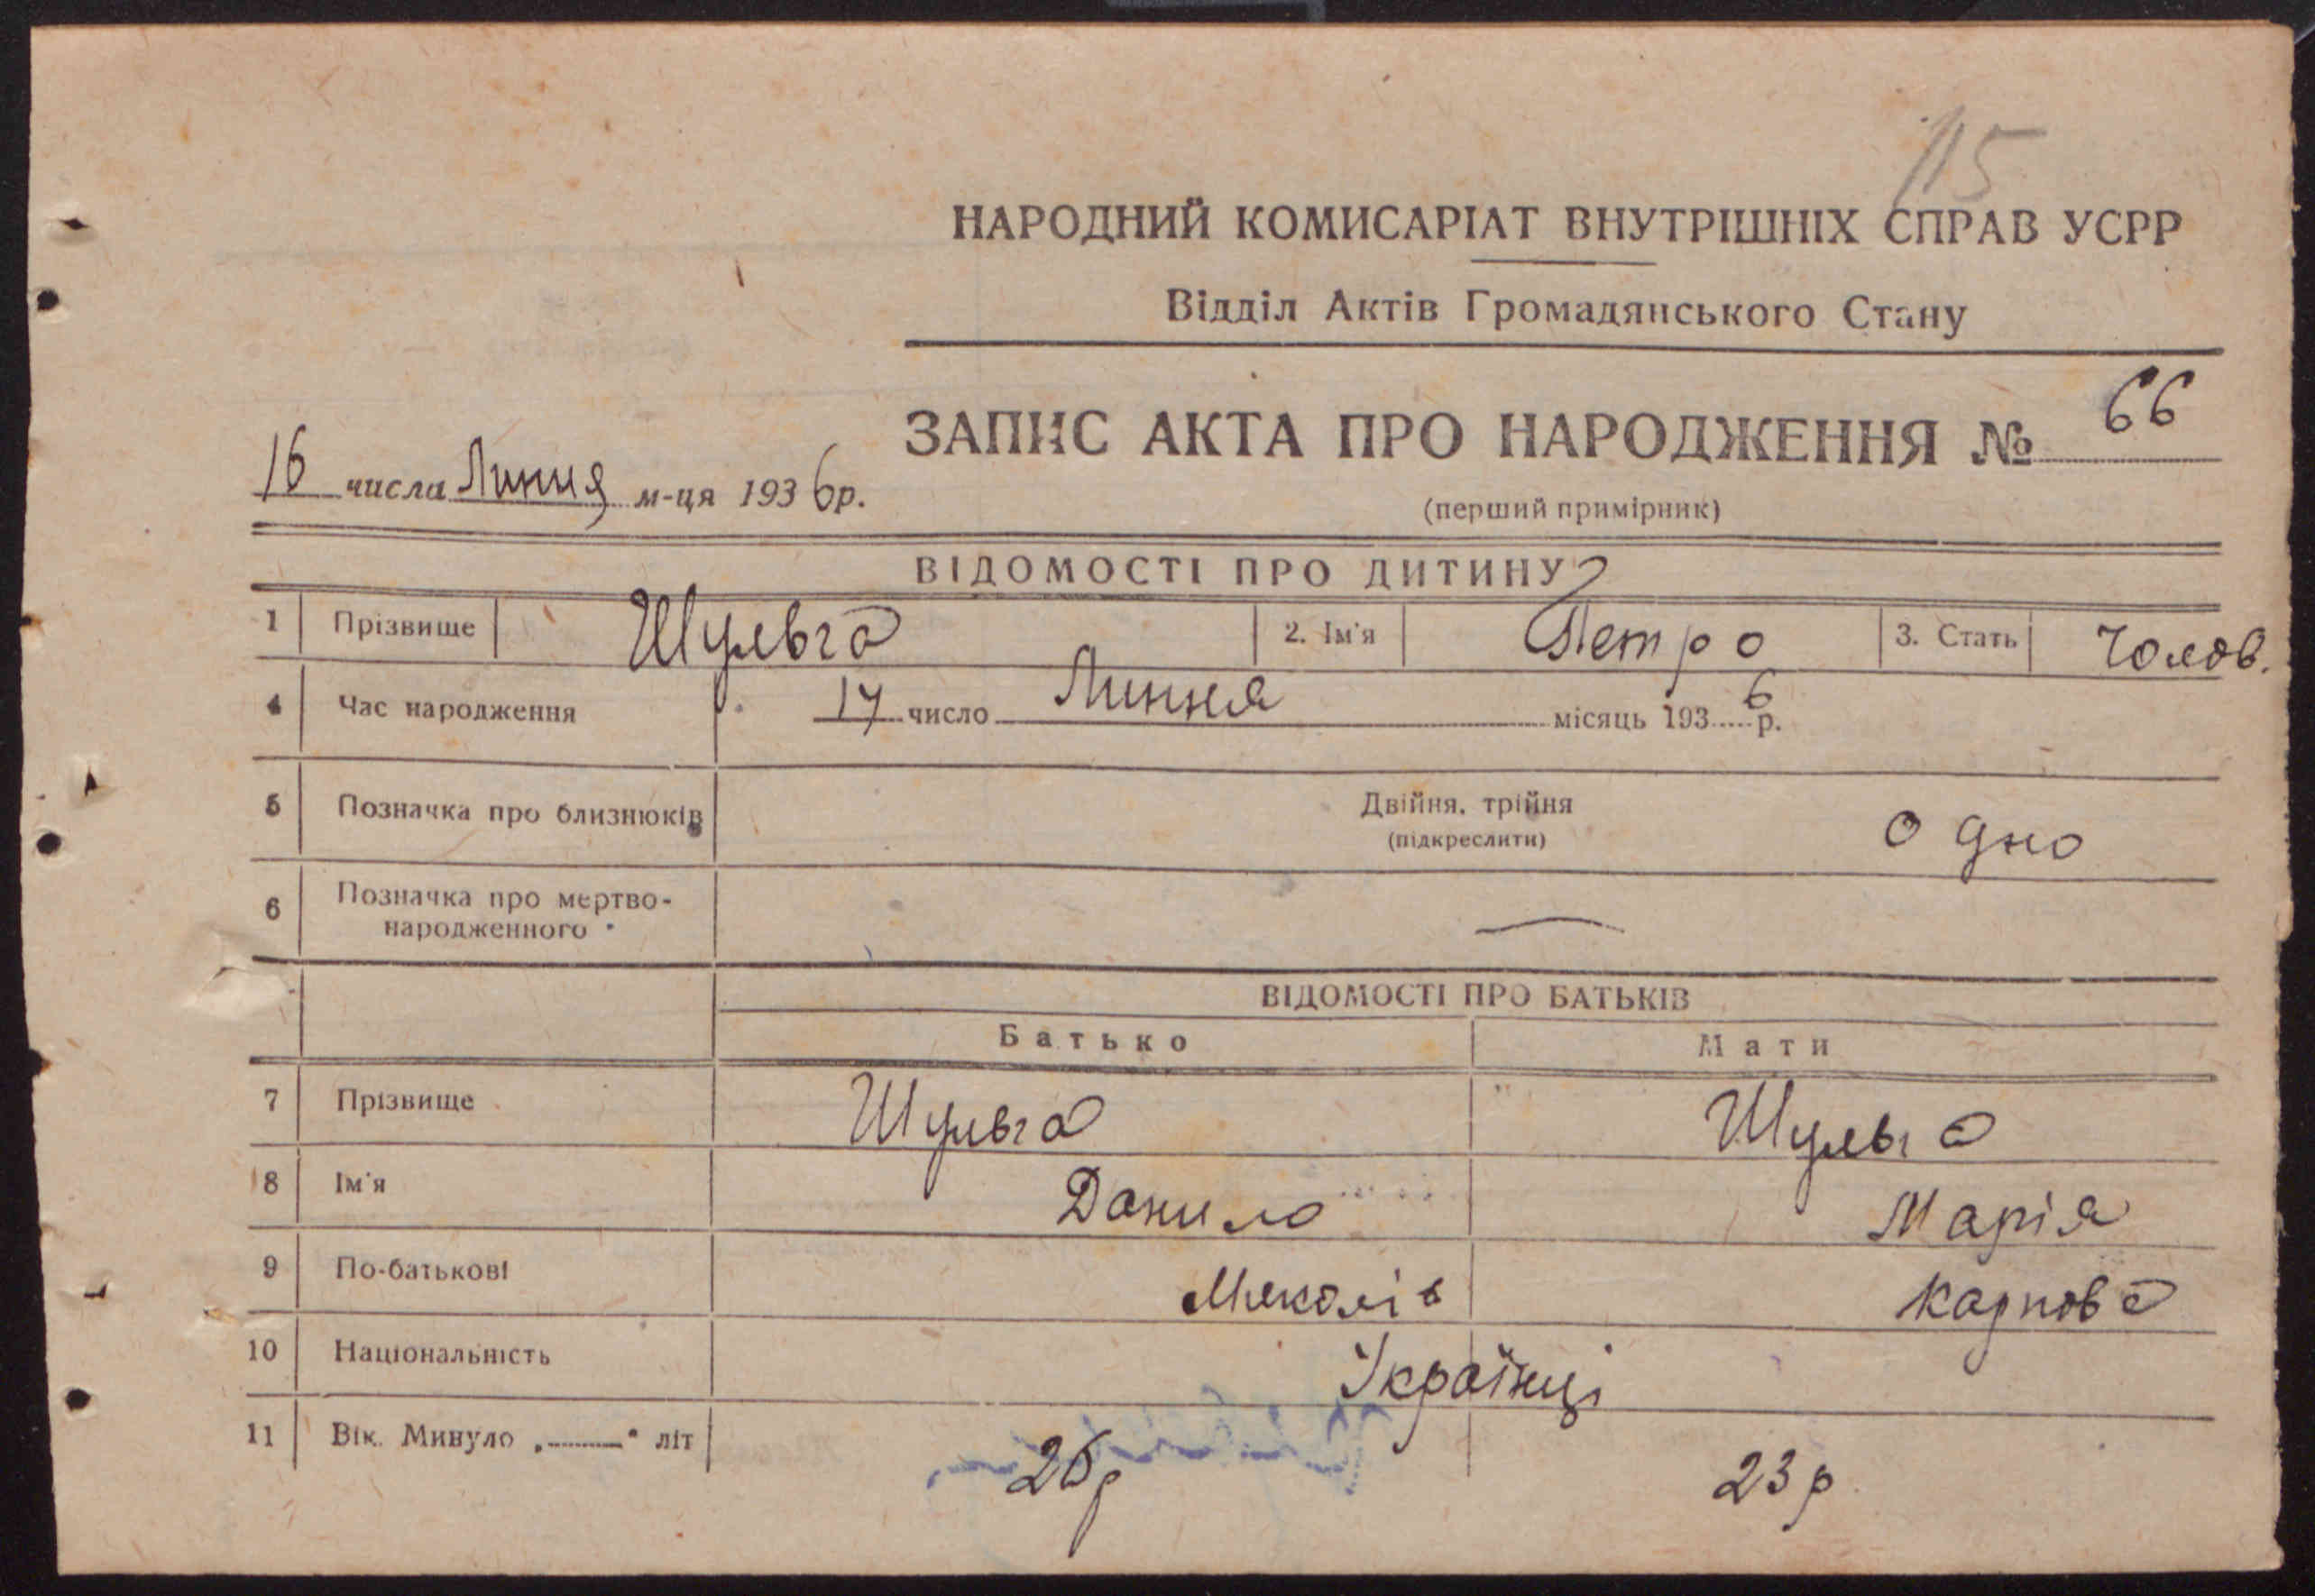 115
НАРОДНИЙ КОМИСАРІАТ ВНУТРІШНІХ СПРАВ УСРР
Відділ Актів Громадянського Стану
ЗАПИС АКТА ПРО НАРОДЖЕННЯ № 66
16 числа Липня м-ця 1936р.
(перший примірник)
ВІДОМОСТІ ПРО ДИТИНУ
1 Прізвище Шульга 2. Ім'я Петро 3. Стать Чолов.
4 Час народження 14 число Липня місяць 1936 р.
5 Позначка про близнюків Двійня, трійня
(підкреслити) одно
6 Позначка про мертво-
народженного —
ВІДОМОСТІ ПРО БАТЬКІВ
Батько Мати
7 Прізвище Шульга Шульга
8 Ім'я Данило Марія
9 По-батькові Миколів Карпова
10 Національність Українці
11 Вік. Минуло „ “ літ 26р 23р